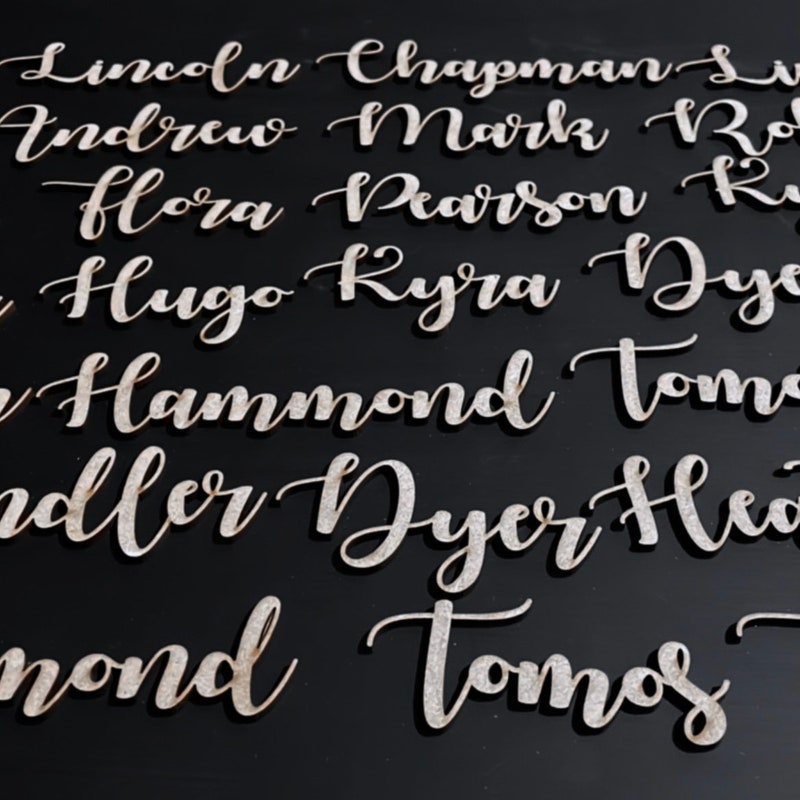 Lincoln Chapman
Andrew Mark
Flora Pearson
Hugo Kyra Dye
Hammond Tomo
ndler Dyer Hea
mond Tomos